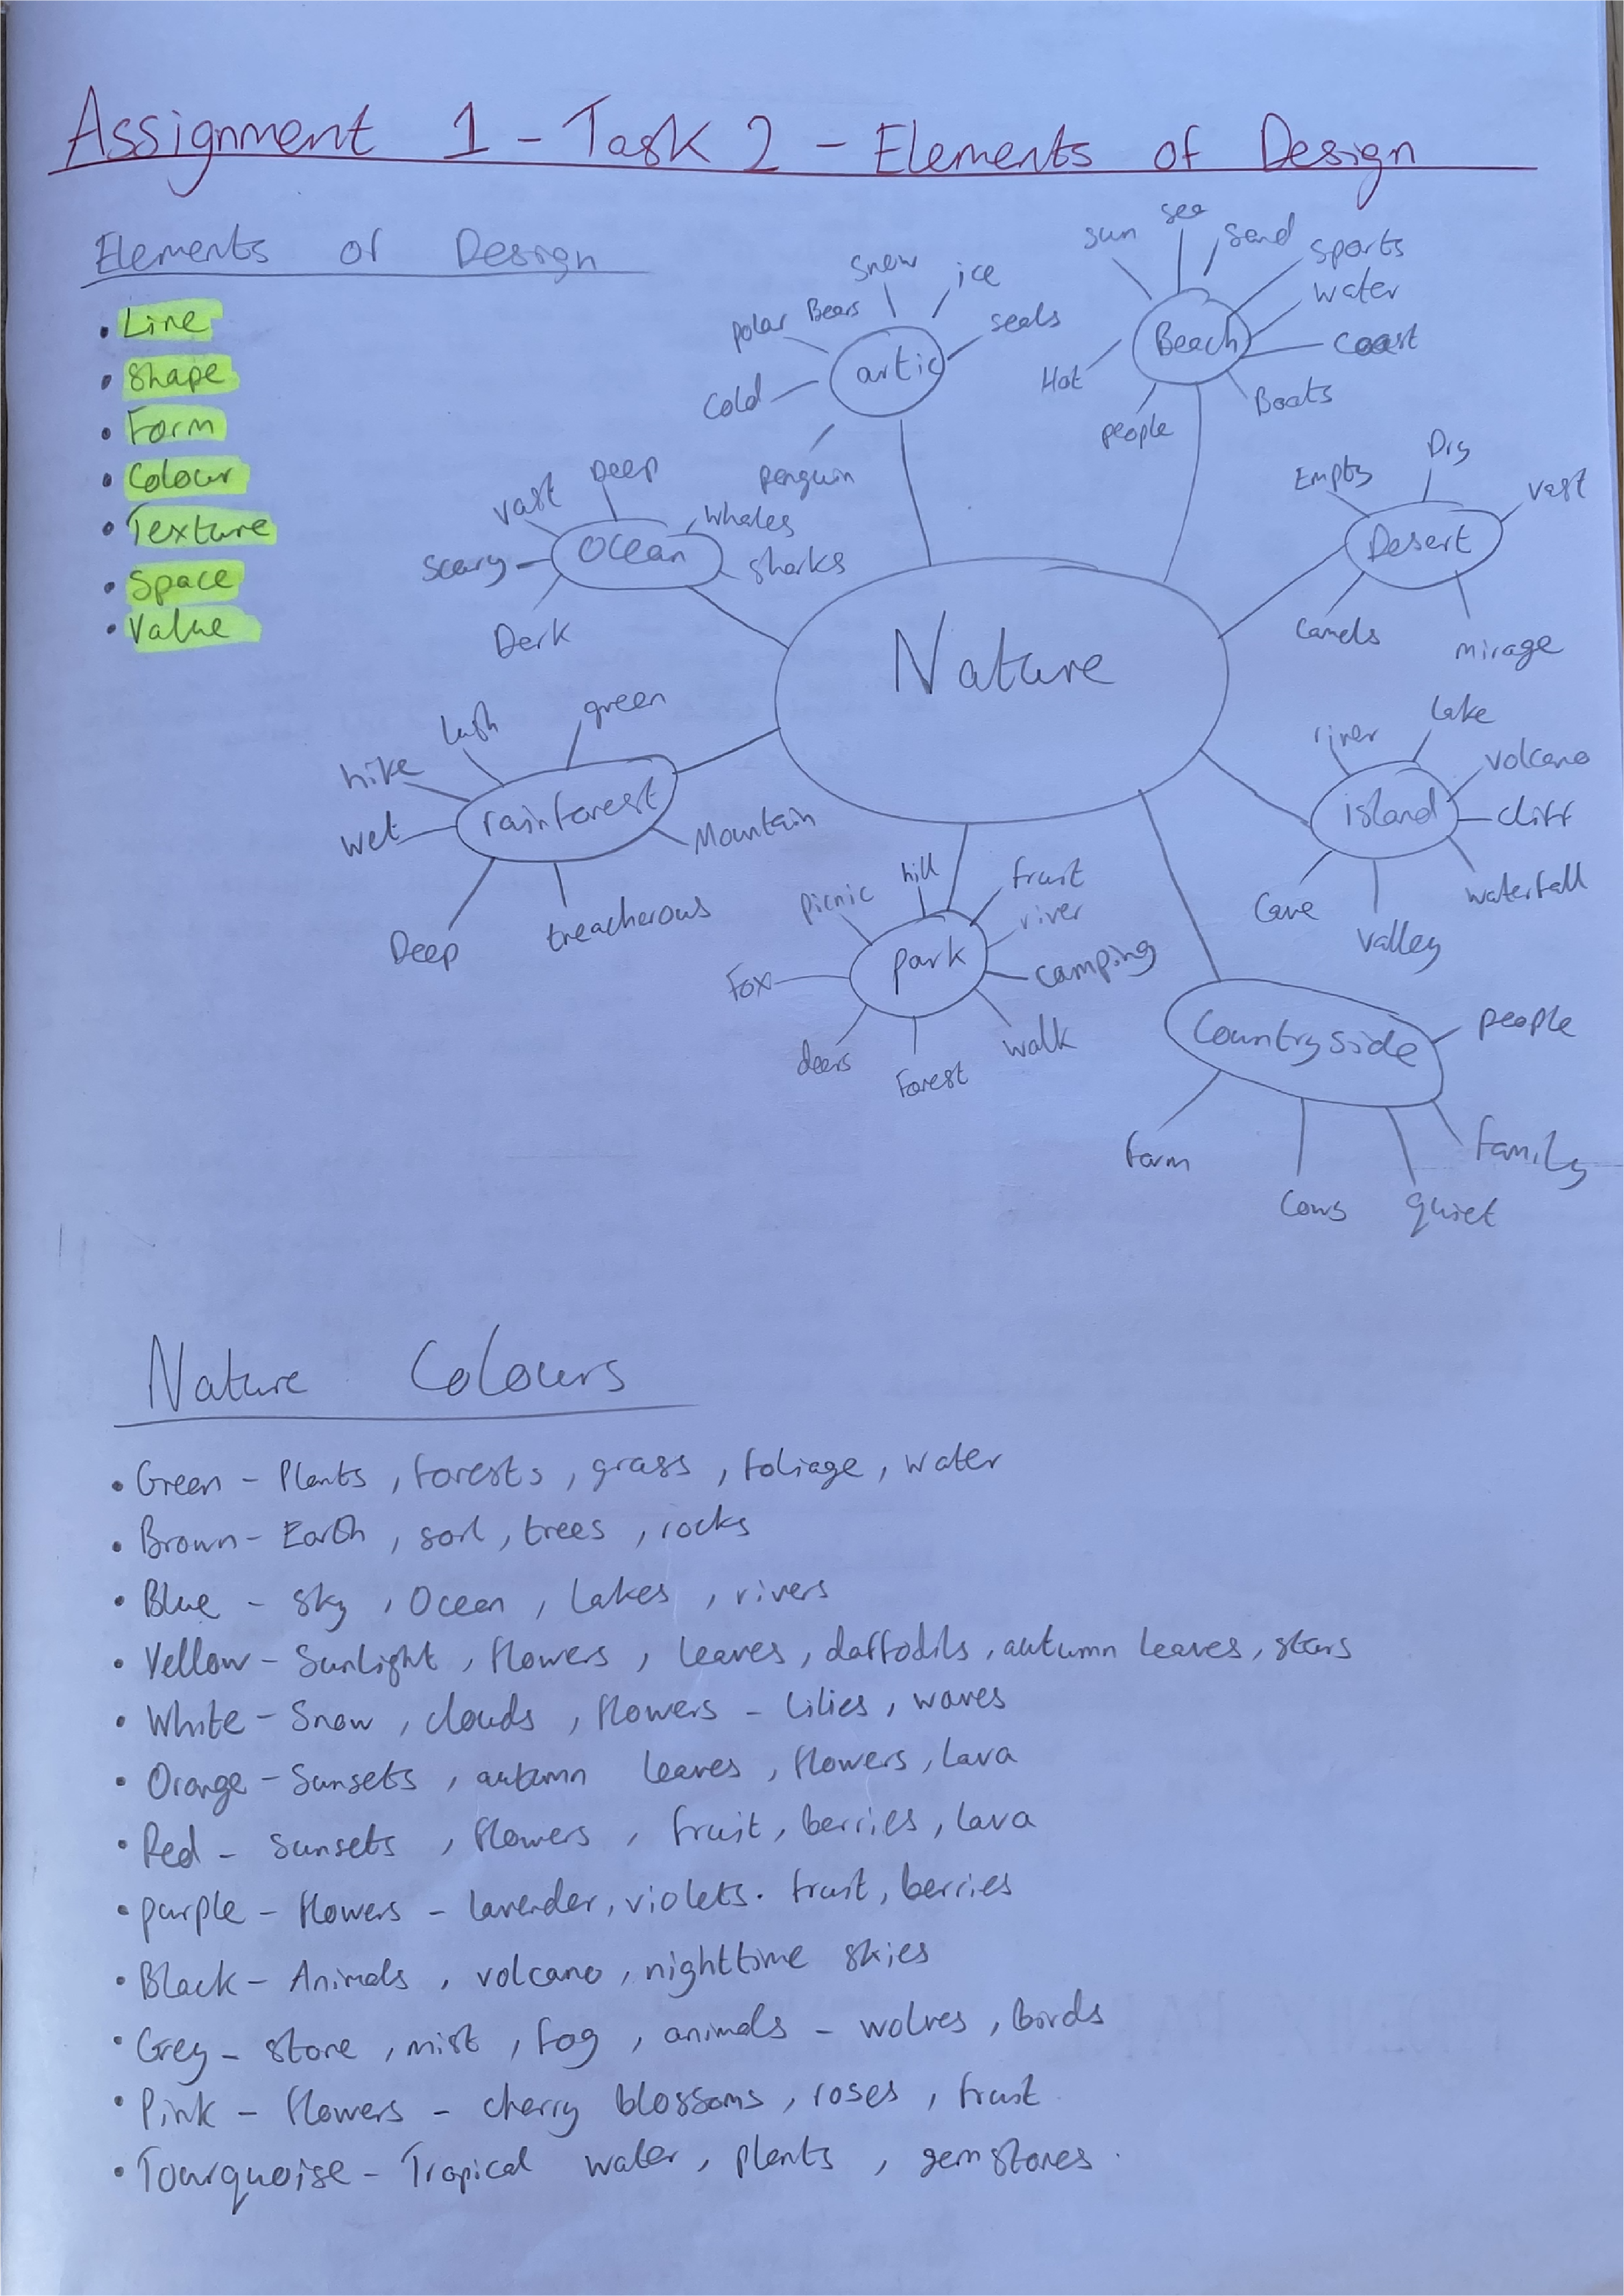 Assignment 1 - Task 2 - Elements of Design
Elements of Design
• Line
• Shape
• Form
• Colour
• Texture
• Space
• Value
Nature
artic
Polar Bears
snow
ice
seals
Cold
penguin
Beach
sun
sea
sand
sports
water
coast
Boats
people
Hot
Desert
Empty
Dry
vast
Camels
mirage
island
river
lake
volcano
cliff
waterfall
valley
Cave
Countryside
people
family
quiet
Cows
farm
park
picnic
hill
fruit
river
camping
walk
Forest
deers
Fox
rainforest
hike
lush
green
Mountain
treacherous
Deep
wet
Ocean
vast
Deep
Whales
sharks
Dark
Scary
Nature Colours
• Green - Plants, forests, grass, foliage, water
• Brown - Earth, soil, trees, rocks
• Blue - sky, Ocean, lakes, rivers
• Yellow - Sunlight, flowers, leaves, daffodils, autumn leaves, stars
• White - Snow, clouds, flowers - lilies, waves
• Orange - Sunsets, autumn leaves, flowers, Lava
• Red - sunsets, flowers, fruit, berries, lava
• purple - flowers - lavender, violets. fruit, berries
• Black - Animals, volcano, nighttime skies
• Grey - stone, mist, fog, animals - wolves, birds
• Pink - flowers - cherry blossoms, roses, fruit
• Tourquoise - Tropical water, plants, gemstones.